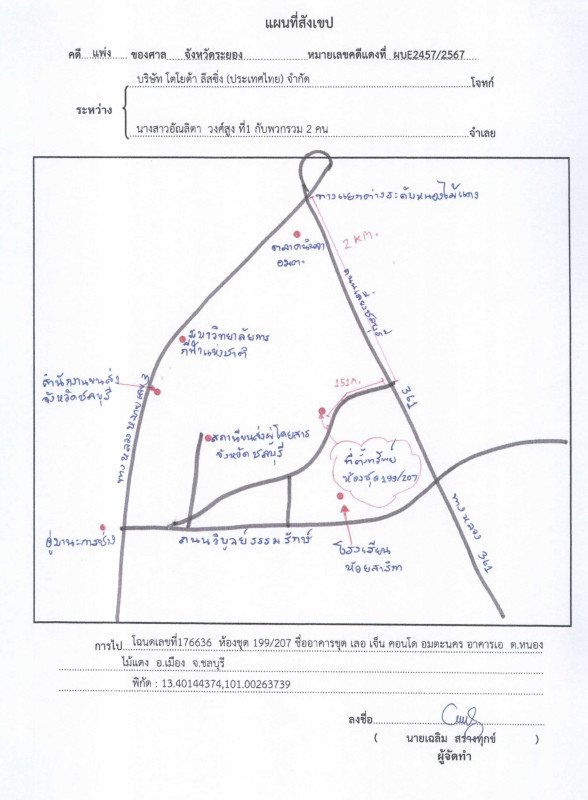 แผนที่สังเขป
คดี แพ่ง ของศาล จังหวัดระยอง หมายเลขคดีแดงที่ ผบE2457/2567
บริษัท โตโยต้า ลีสซิ่ง (ประเทศไทย) จำกัด โจทก์
ระหว่าง
นางสาวอัณลิตา วงศ์สูง ที่1 กับพวกรวม 2 คน จำเลย
ทางแยกต่างระดับหนองไม้แดง
2 KM.
ตลาด
อมตะ
ถนนเลี่ยงชลบุรี
มหาวิทยาลัยการ
กีฬาแห่งชาติ
สำนักงานขนส่ง
จังหวัดชลบุรี
ทางหลวงหมายเลข 3
361
สถานีขนส่งผู้โดยสาร
จังหวัดชลบุรี
ที่ตั้งทรัพย์
ห้องชุด 199/207
ทางหลวง 361
ถนนวิบูลย์ธรรมรักษ์
โรงเรียน
ห้วยสาริกา
การไป โฉนดเลขที่176636 ห้องชุด 199/207 ชื่ออาคารชุด เลอ เจ็น คอนโด อมตะนคร อาคารเอ ต.หนอง
ไม้แดง อ.เมือง จ.ชลบุรี
พิกัด : 13.40144374,101.00263739
ลงชื่อ
( นายเฉลิม สร่างทุกข์ )
ผู้จัดทำ